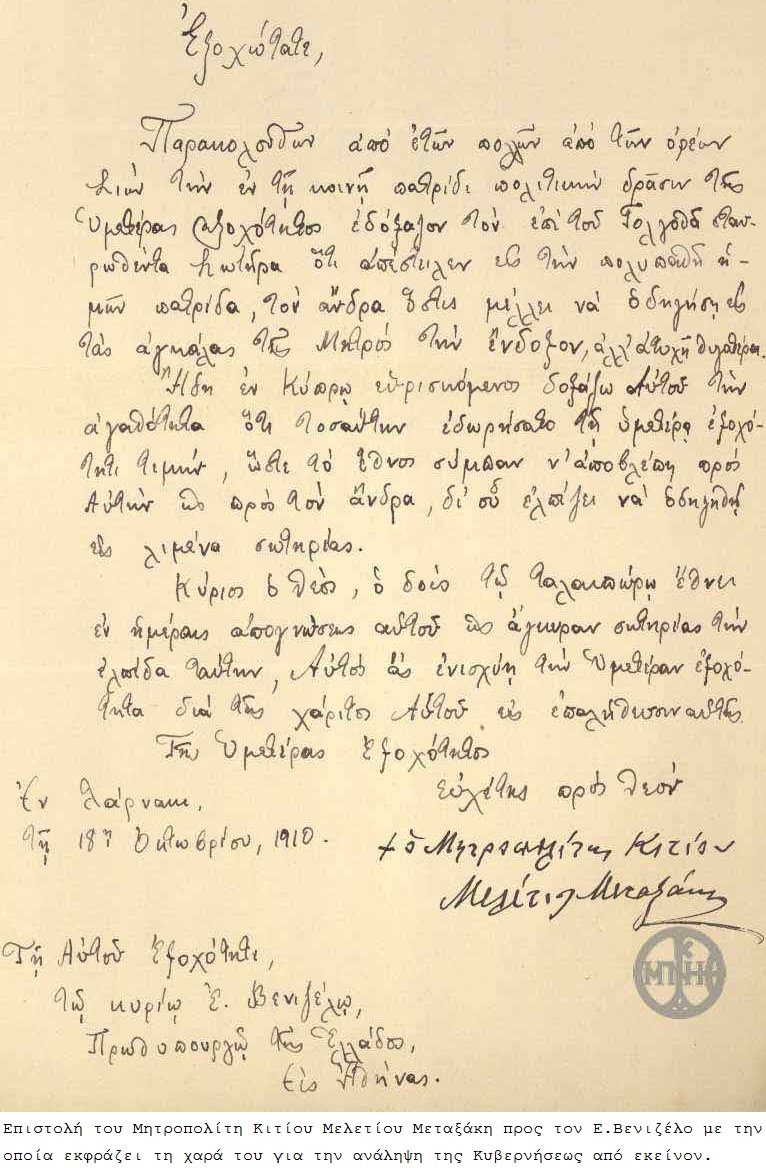 Ἐξοχώτατε,
Παρακολουθῶν ἀπό ἐτῶν πολλῶν ἀπό τῶν ὀρέων
Σιών τήν ἐν τῇ κοινῇ πατρίδι πολιτικήν δρᾶσιν τῆς
Ὑμετέρας Ἐξοχότητος ἐδόξαζον τόν ἐπί τοῦ Γολγοθᾶ σταυ-
ρωθέντα Σωτῆρα ὅτι ἀπέστειλεν εἰς τήν πολυπαθῆ ἡ-
μῶν πατρίδα, τόν ἄνδρα ὅστις μέλλει νά ὁδηγήσῃ εἰς
τάς ἀγκάλας τῆς Μητρός τήν ἔνδοξον, ἀλλ' ἀτυχῆ θυγατέρα.
Ἤδη ἐν Κύπρῳ εὑρισκόμενος δοξάζω Αὐτοῦ τήν
ἀγαθότητα ὅτι τοσαύτην ἐδωρήσατο τῇ ὑμετέρᾳ ἐξοχό-
τητι τιμήν, ὥστε τό ἔθνος σύμπαν ν' ἀποβλέπῃ πρός
Αὐτήν ὡς πρός τόν ἄνδρα, δι' οὗ ἐλπίζει νά ὁδηγηθῇ
εἰς λιμένα σωτηρίας.
Κύριος ὁ Θεός, ὁ δούς τῷ ταλαιπώρῳ ἔθνει
ἐν ἡμέραις ἀπογνώσεως αὐτοῦ ὡς ἄγκυραν σωτηρίας τήν
ἐλπίδα ταύτην, Αὐτός ἄς ἐνισχύῃ τήν Ὑμετέραν ἐξοχό-
τητα διά τῆς χάριτος Αὐτοῦ εἰς ἐπαλήθευσιν αὐτῆς.
Τῆς Ὑμετέρας Ἐξοχότητος
εὐχέτης πρός Θεόν
Ἐν Λάρνακι,
τῇ 18ῃ Ὀκτωβρίου, 1910.
+ ὁ Μητροπολίτης Κιτίου
Μελέτιος Μεταξάκης
Τῇ Αὐτοῦ Ἐξοχότητι,
τῷ κυρίῳ Ἐ. Βενιζέλῳ,
Πρωθυπουργῷ τῆς Ἑλλάδος,
Εἰς Ἀθήνας.
ΜΝΗΑ
Επιστολή του Μητροπολίτη Κιτίου Μελετίου Μεταξάκη προς τον Ε.Βενιζέλο με την
οποία εκφράζει τη χαρά του για την ανάληψη της Κυβερνήσεως από εκείνον.